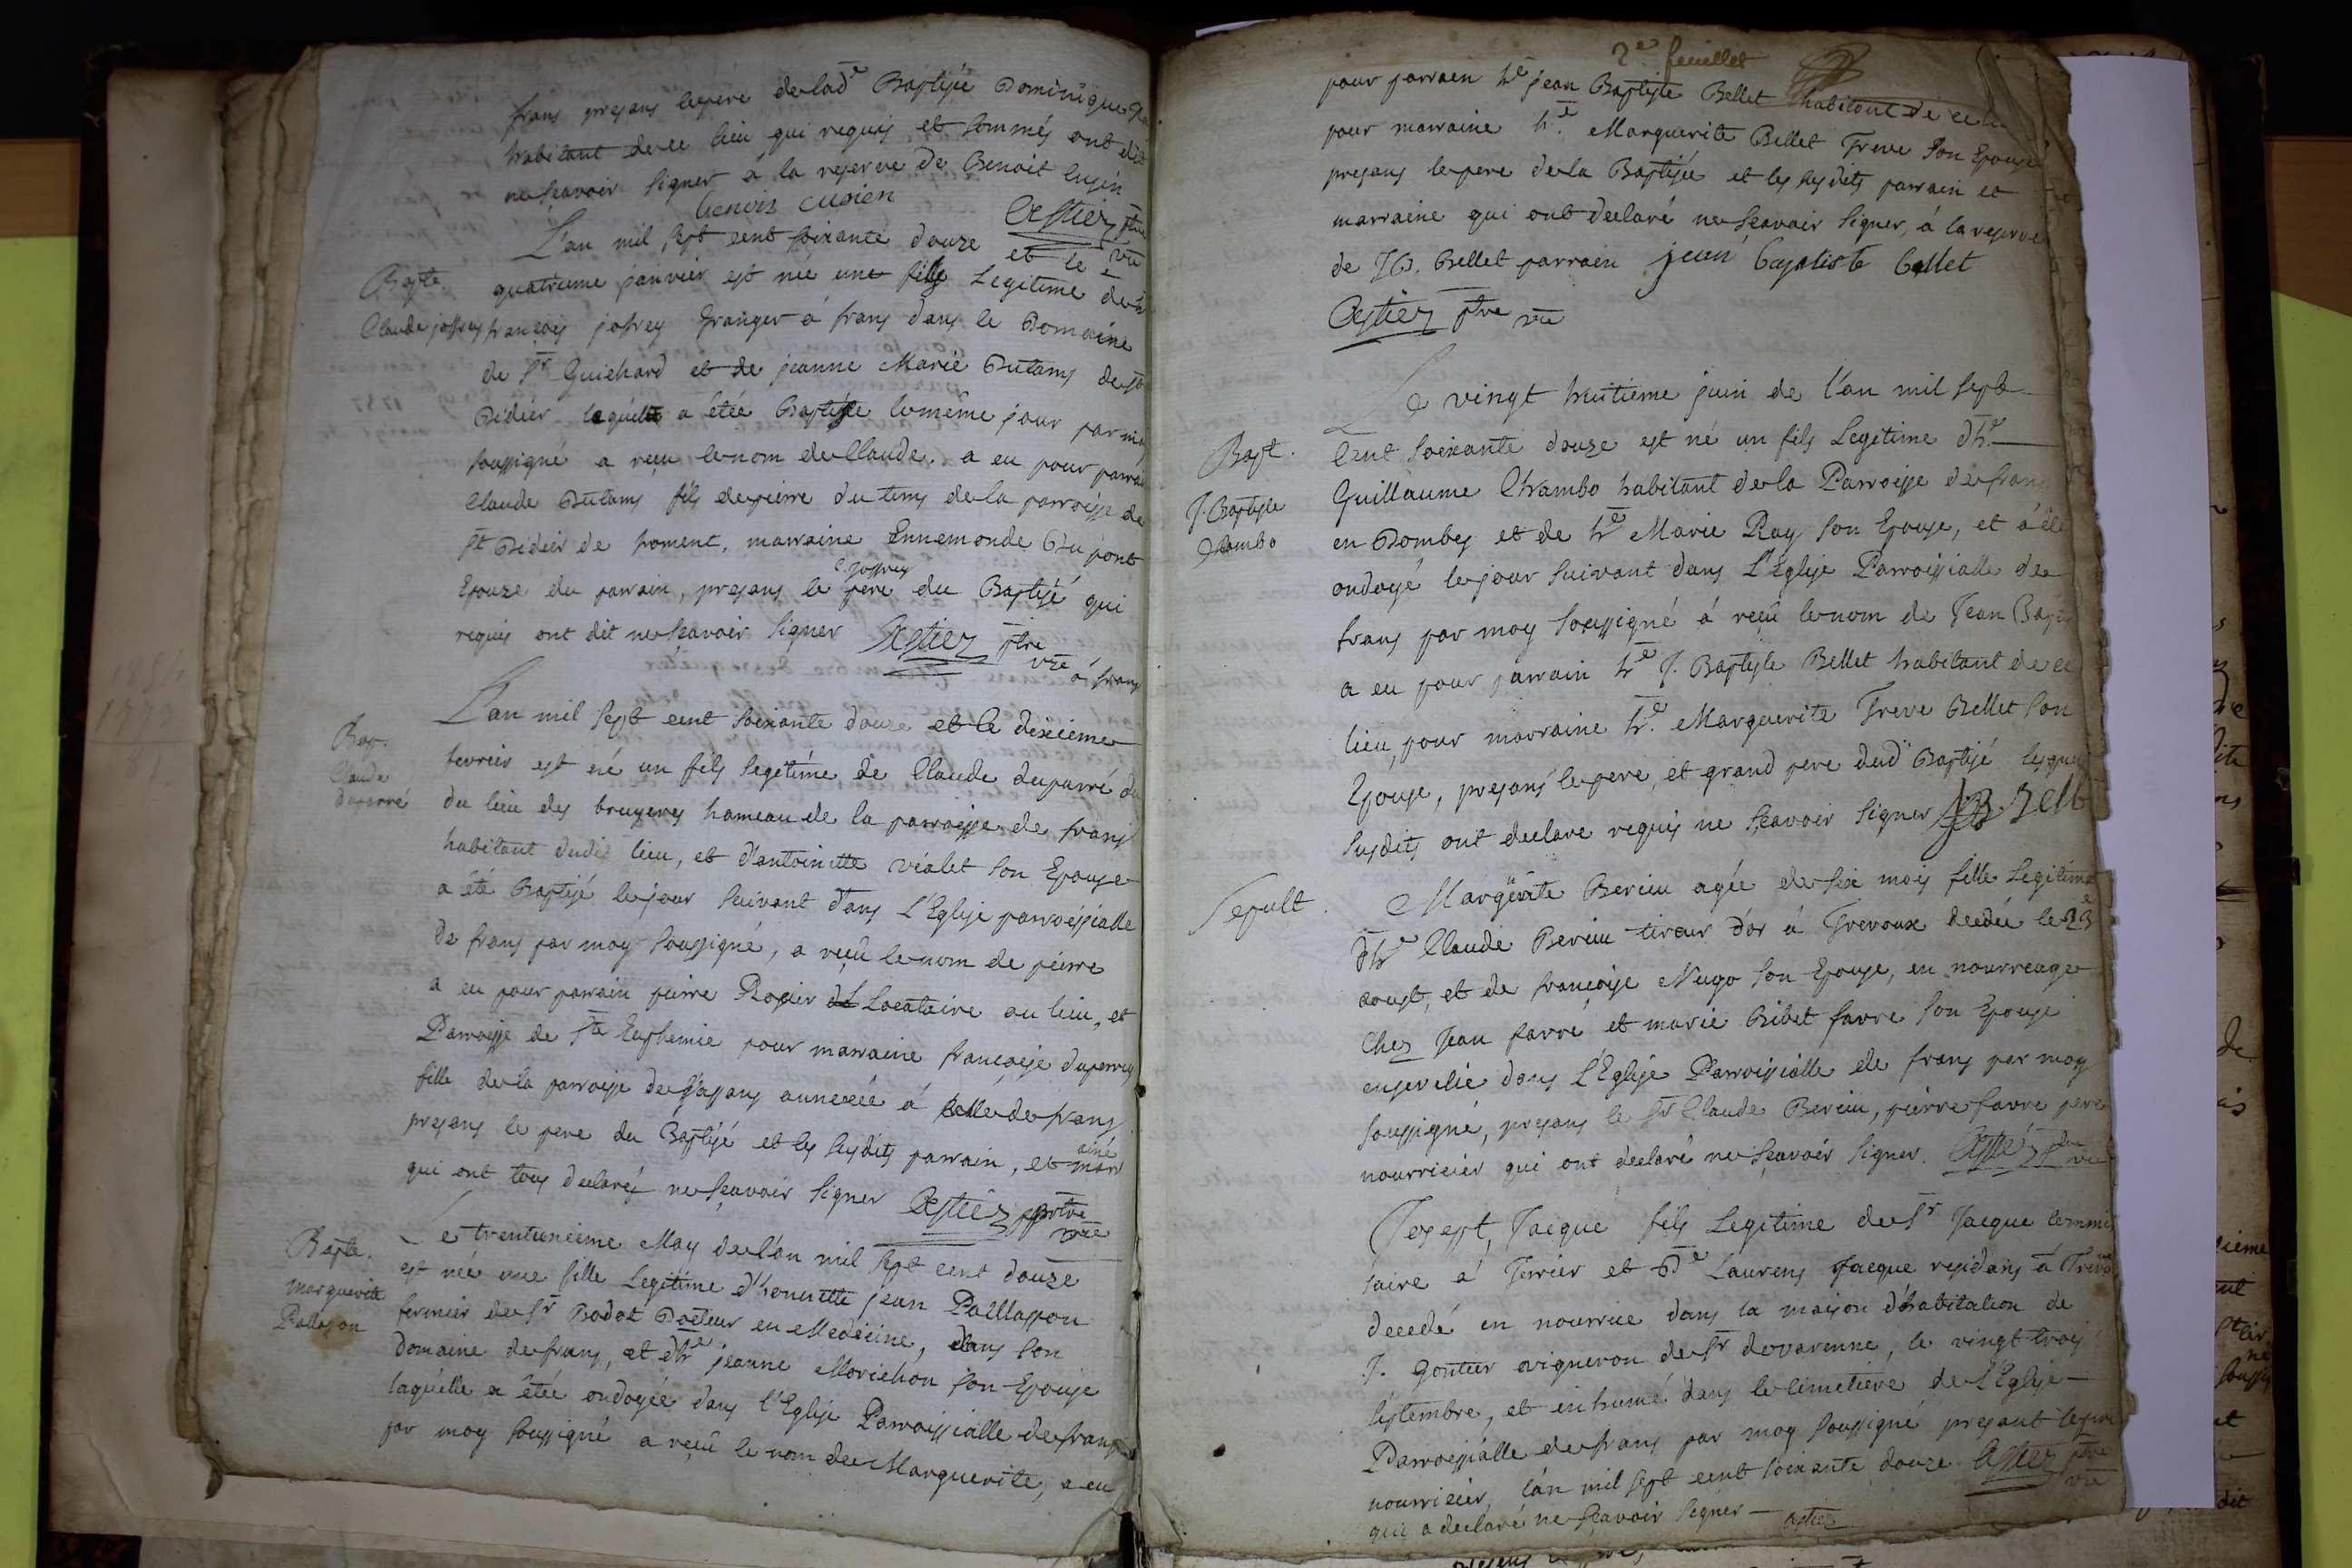 frans presans le père de lad.e Baptisée Dominique
habitant de ce lieu qui requis et sommés ont dit
ne sçavoir signer a la reserve de Benoit cusin
benois cusien Astier ptre
L'an mil sept cent soixante douze et le vre
Bapte. quatrieme janvier est née une fille Legitime de
Claude joffrey francois joffrey Granger à frans dans le Domaine
de Sr Guichard et de jeanne Marie Dutams de St
Didier laquelle a étée Baptisée le même jour par moy
soussigné a reçu le nom de Claude. a eu pour parrain
Claude Dutams fils de pierre du tems de la parroisse de
St Didier de froment, marraine Ennemonde Du pont
Epouze du parrain, presans le pere du Baptisé qui
C. joffrey
requis ont dit ne sçavoir signer Astier ptre
vre à frans
L'an mil sept cent soixante douze et le dixieme
Bap. fevrier est né un fils legitime de Claude duparré
Claude du lieu des bruyeres hameau de la parroisse de frans
duparré
habitant dudit lieu, et d'antoinette vialet son Epouse
a été Baptisé le jour suivant dans L'Eglise parroissialle
de frans par moy soussigné, a reçu le nom de pierre
a eu pour parrain pierre Rosier Locataire au lieu, et
Parroisse de Ste Euphemie pour marraine francoise
fille de la parroisse de annexée à celle de frans
presans le pere du Baptisé et les susdits parrain, et marraine
qui ont tous declarés ne sçavoir signer Astier prtre
vre
Bapte. Le trentunieme May de l'an mil sept cent douze
marguerite est née une fille Legitime d'honnette jean Paillasson
Pallasson fermier de Sr Bodot Docteur en Medecine, dans son
domaine de frans, et d'he jeanne Morichon son Epouse
laquelle a étée ondoyée dans l'Eglise Parroissialle de frans
par moy soussigné a reçu le nom de Marguerite, a eu
2e feuillet
pour parrain he jean Baptiste Bellet habitant de ce lieu
pour marraine he Marguerite Bellet Treve son Epouse
presans le pere de la Baptisée et les susdits parrain et
marraine qui ont declaré ne sçavoir signer, à la reserve
de JB. Bellet parrain jean baptiste bellet
Astier ptre vre
Le vingt huitieme juin de l'an mil sept
Bapt. Cent soixante douze est né un fils Legitime d'he
J. Baptiste Guillaume Chambo habitant de la Parroisse de frans
Chambo en Dombes et de he Marie Ray son Epouse, et a été
ondoyé le jour suivant dans L'Eglise Parroissialle de
frans par moy soussigné à reçû le nom de Jean Bapt
a eu pour parrain he J. Baptiste Bellet habitant de ce
lieu, pour marraine he Marguerite Treve Bellet son
Epouse, presans le pere, et grand pere dud Baptisé lesquels
susdits ont declare requis ne sçavoir signer JB Bellet
Sepult. Marguerite Berieu agée de six mois fille Legitime
d'he Claude Berieu tireur d'or à Trevoux decedée le 23e
aoust, et de francoise Nugo son Epouse, en nourreage
Chez Jean favre et marie Bibet favre son Epouse
ensevelie dans L'Eglise Parroissialle de frans par moy
soussigné, presans le Sr Claude Berieu, pierre favre pere
nourricier qui ont declaré ne sçavoir signer. Astier ptre vre
Josept, Jacque fils Legitime de Sr Jacque commis
saire à Terrier et De Laurens Jacque residans à Trevoux
decedé en nourrice dans la maison d'habitation de
J. gontier vigneron de Sr devarenne, le vingt trois
septembre, et inhumé dans le cimetiere de L'Eglise
Parroissialle de frans par moy soussigné presant le pere
nourricier, l'an mil sept cent soixante douze Astier ptre vre
qui a declaré ne sçavoir signer — astier